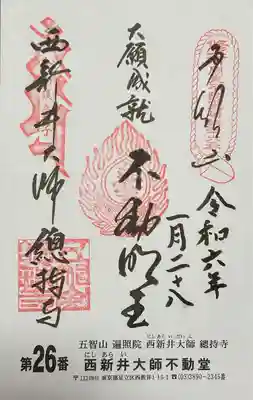 五智山
令和六年
一月二十八
大願成就
不動明王
西新井大師 總持寺
にしあらいだいし
五智山 遍照院 西新井大師 總持寺
にしあらい
第26番 西新井大師不動堂
東京都足立区西新井1-15-1 (03)3890-2345番